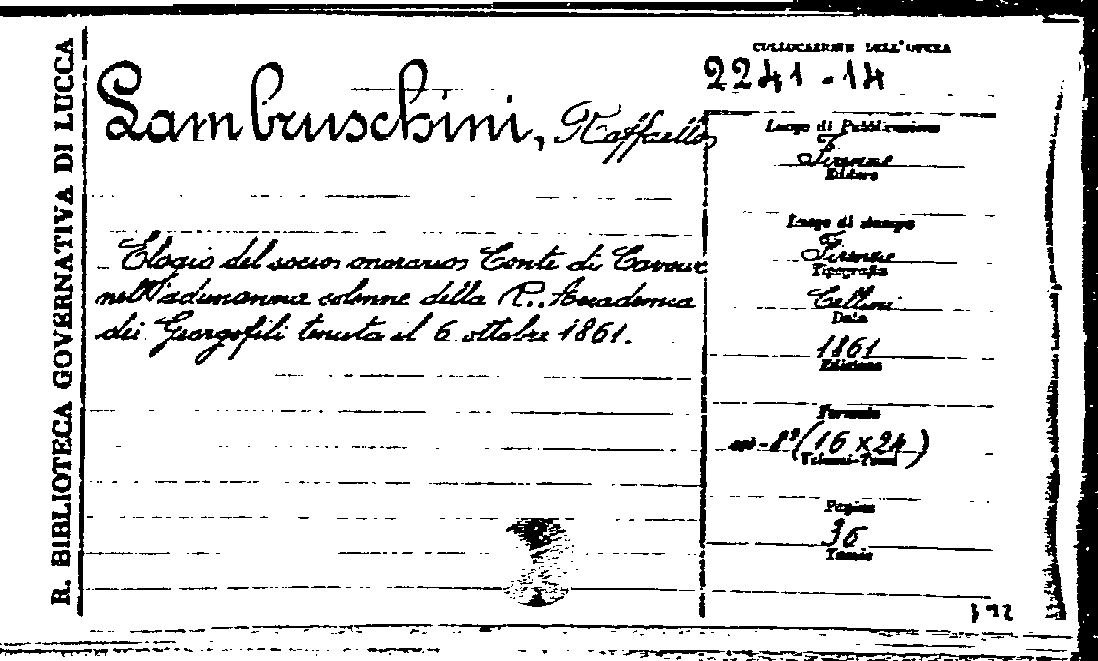 R. BIBLIOTECA GOVERNATIVA DI LUCCA
COLLOCAZIONE DELL'OPERA
2241-14
Lambruschini, Raffaello
Elogio del socio onorario Conte di Cavour
nell'adunanza solenne della R. Accademia
dei Georgofili tenuta il 6 ottobre 1861.
Luogo di Pubblicazione
Firenze
Editore
Luogo di stampa
Firenze
Tipografia
Cellini
Data
1861
Edizione
Formato
in-8° (16 x 24)
Volumi-Tomi
Pagine
36